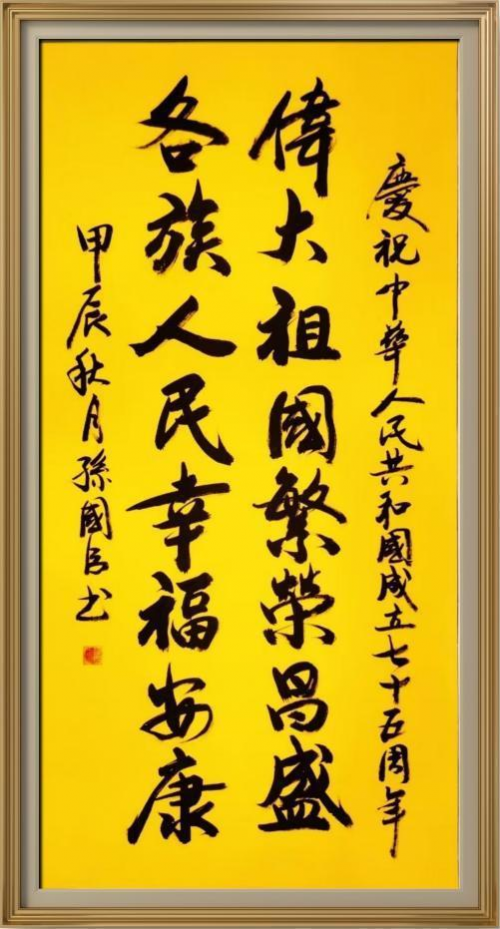 慶祝中華人民共和國成立七十五周年
偉大祖國繁榮昌盛
各族人民幸福安康
甲辰秋月孫國臣书